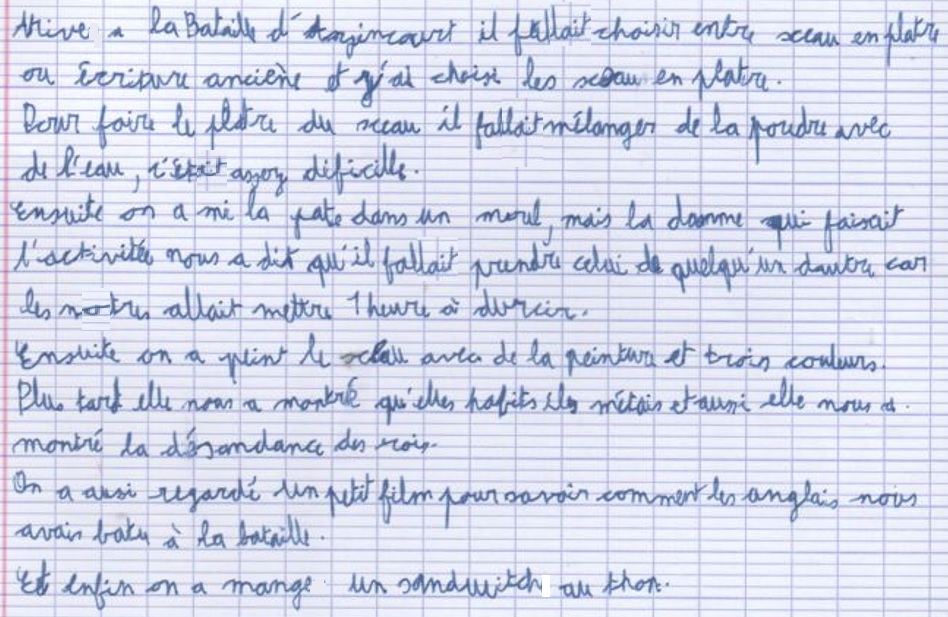 Arive a la Bataille d'Angincourt il fallait choisir entre sceau en platre
ou écripure anciène et j'ai choisi les sceau en platre.
Pour faire le platre du sceau il fallait mélanger de la poudre avec
de l'eau, c'était assez dificille.
Ensuite on a mi la pate dans un moul, mais la damme qui faisait
l'activitée nous a dit qu'il fallait prendre celui de quelqu'un dautre car
les notres allait mettre 1 heure à durcir.
Ensuite on a peint le sceau avec de la peinture et trois couleurs.
Plus tard elle nous a montré qu'elles habits ils métais et aussi elle nous a
montré la désandance des rois.
On a ausi regardé un petit film pour savoir comment les anglais nous
avais batu à la bataille.
Et enfin on a mange un sandwitch au thon.